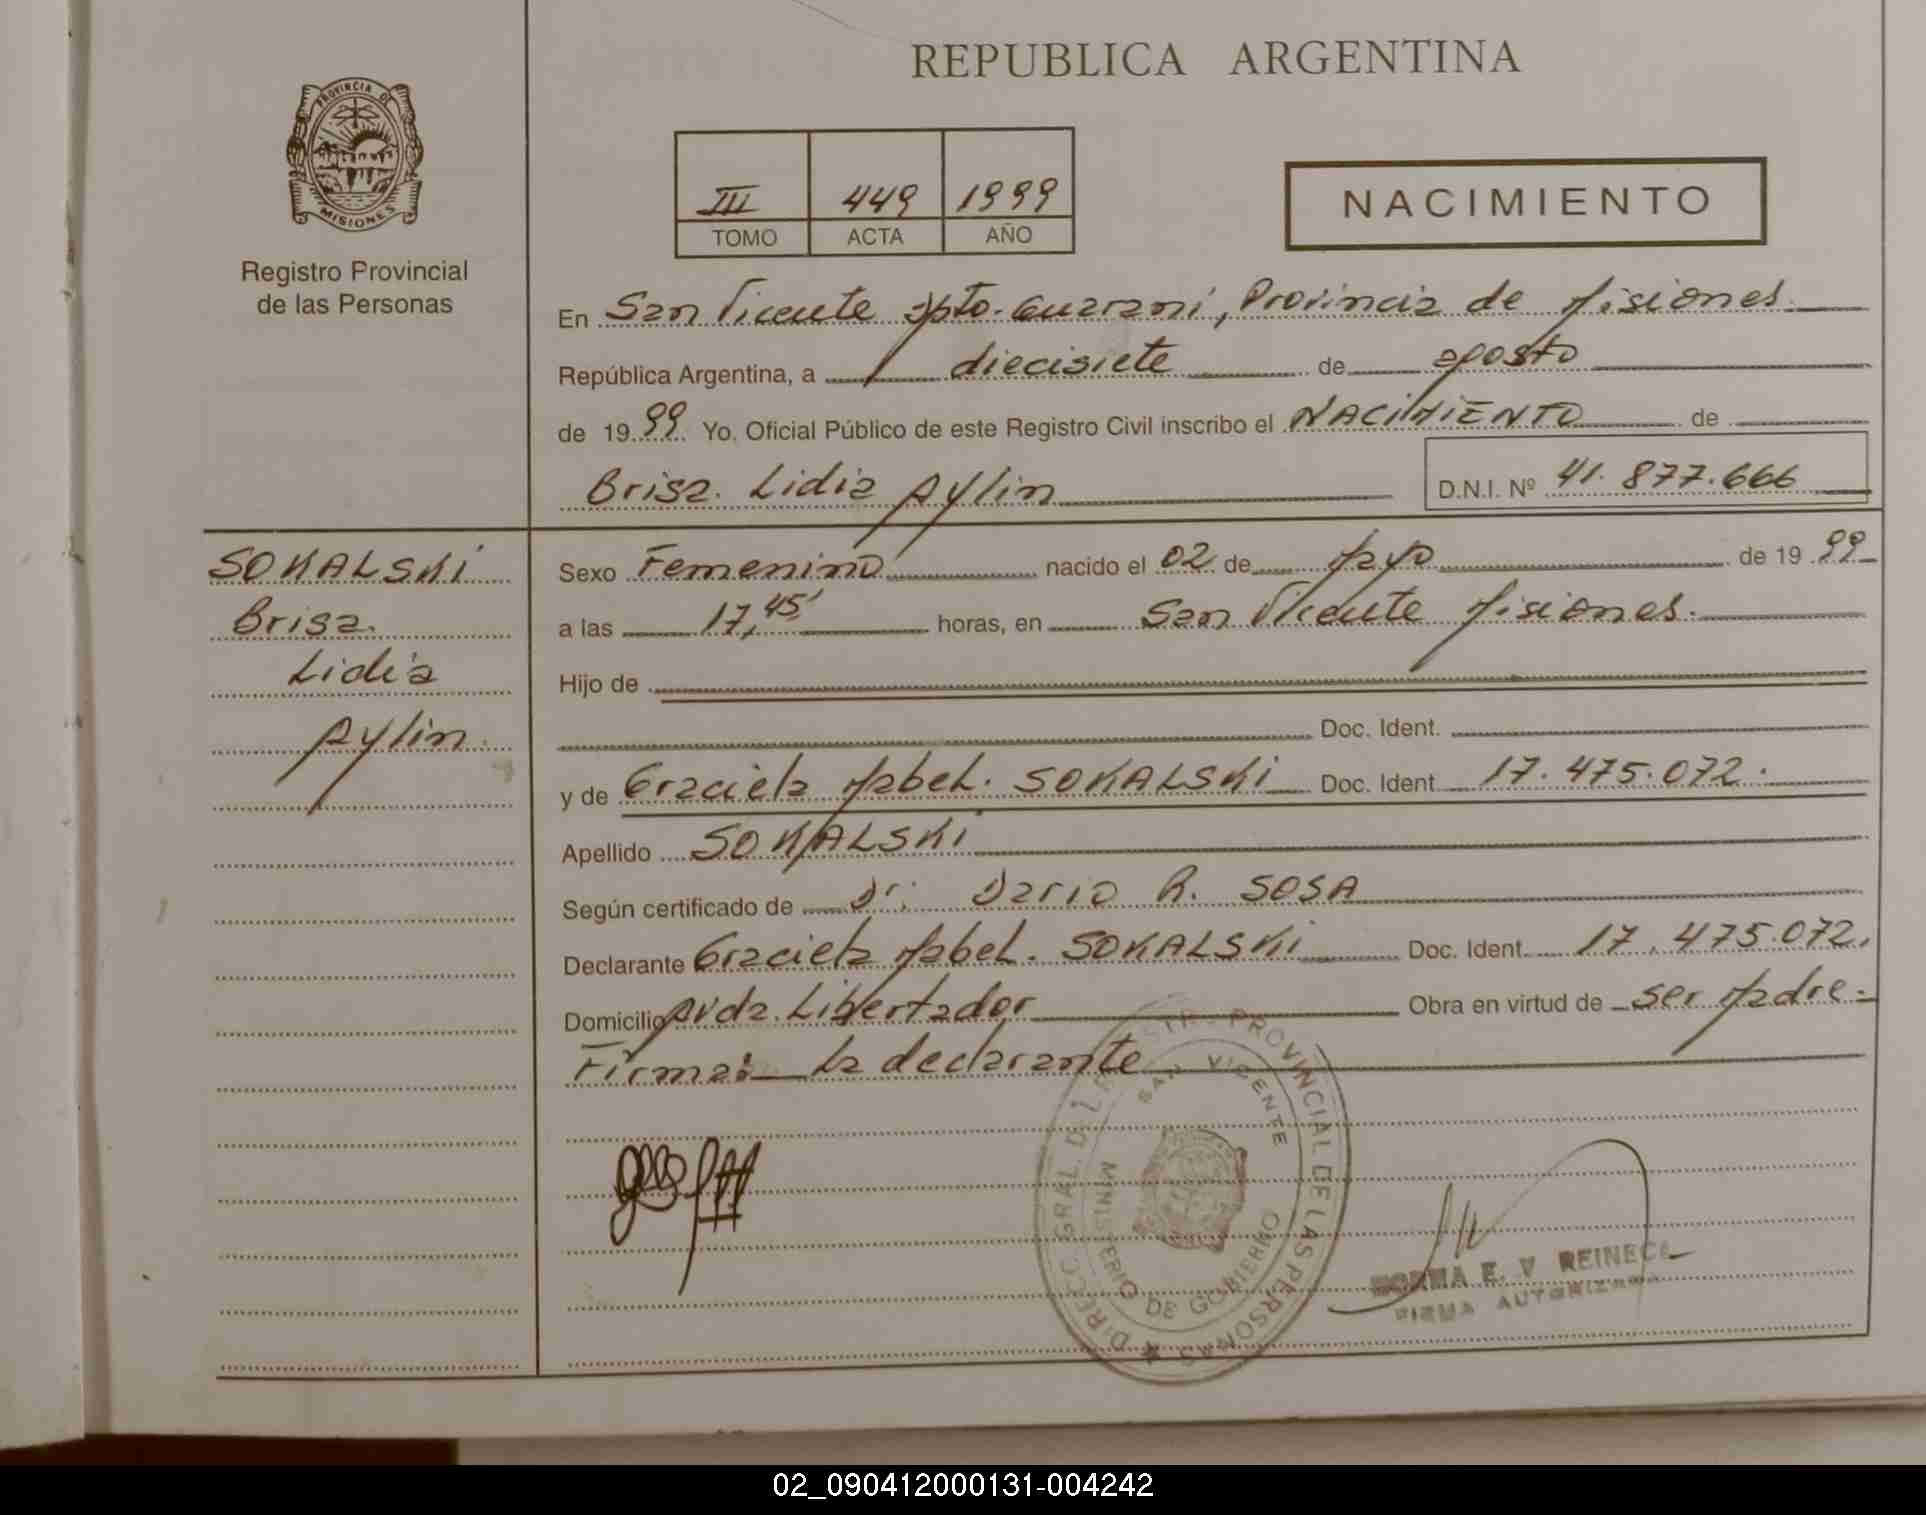 REPUBLICA ARGENTINA
PROVINCIA DE
MISIONES
Registro Provincial
de las Personas
III 449 1999
TOMO ACTA AÑO
NACIMIENTO
En San Vicente Dpto. Guarani, Provincia de Misiones.
República Argentina, a diecisiete de agosto
de 1999 Yo. Oficial Público de este Registro Civil inscribo el NACIMIENTO de
Brisa. Lidia Aylin
D.N.I. Nº 41.877.666
SOKALSKi
Brisa.
Lidia
Aylin.
Sexo Femenino nacido el 02 de Mayo de 1999
a las 17,45' horas, en San Vicente Misiones.
Hijo de
Doc. Ident.
y de Graciela Mabel. SOKALSKi Doc. Ident. 17.475.072.
Apellido SOKALSKi
Según certificado de Dr: Dario R. SOSA
Declarante Graciela Mabel. SOKALSKi Doc. Ident. 17.475.072.
Domicilio Avda. Libertador Obra en virtud de ser Madre.
Firma: La declarante
DIRECC. GRAL. DEL REGISTR. PROVINCIAL DE LAS PERSONAS
SAN VICENTE
MINISTERIO DE GOBIERNO
NORMA E. V REINECK
FIRMA AUTORIZADA
02_090412000131-004242